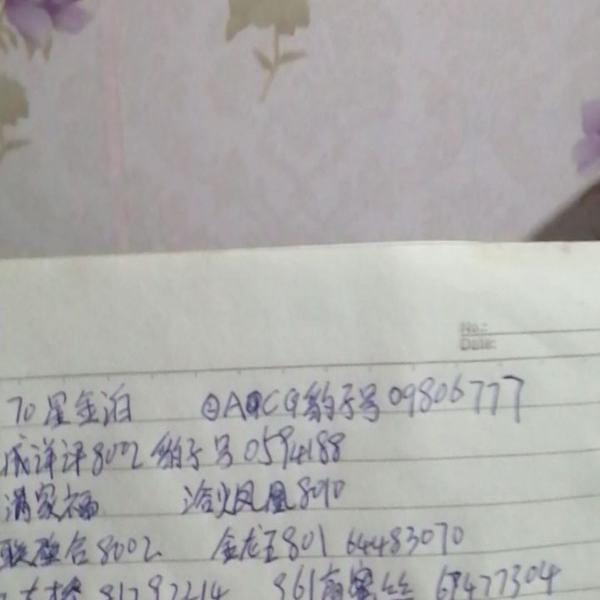 No.:
Date:
70星金泊 @AQCG豹子号09806777
成洋评8002 豹子号0594188
满家福 浴火凤凰8090
联盟合8002 金龙王801 64483070
大桥 81792214 861 68477304